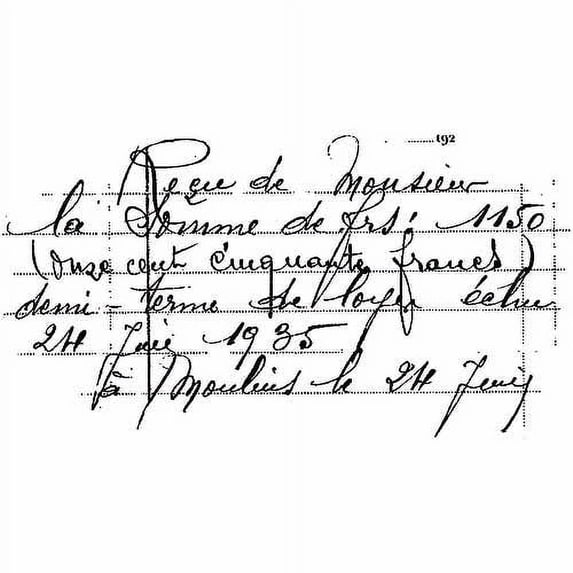 192
Reçu de Monsieur
la Somme de frs: 1150
(Onze cent cinquante francs)
demi-terme de loyer échu
24 Juin 1935
à Moulins le 24 Juin